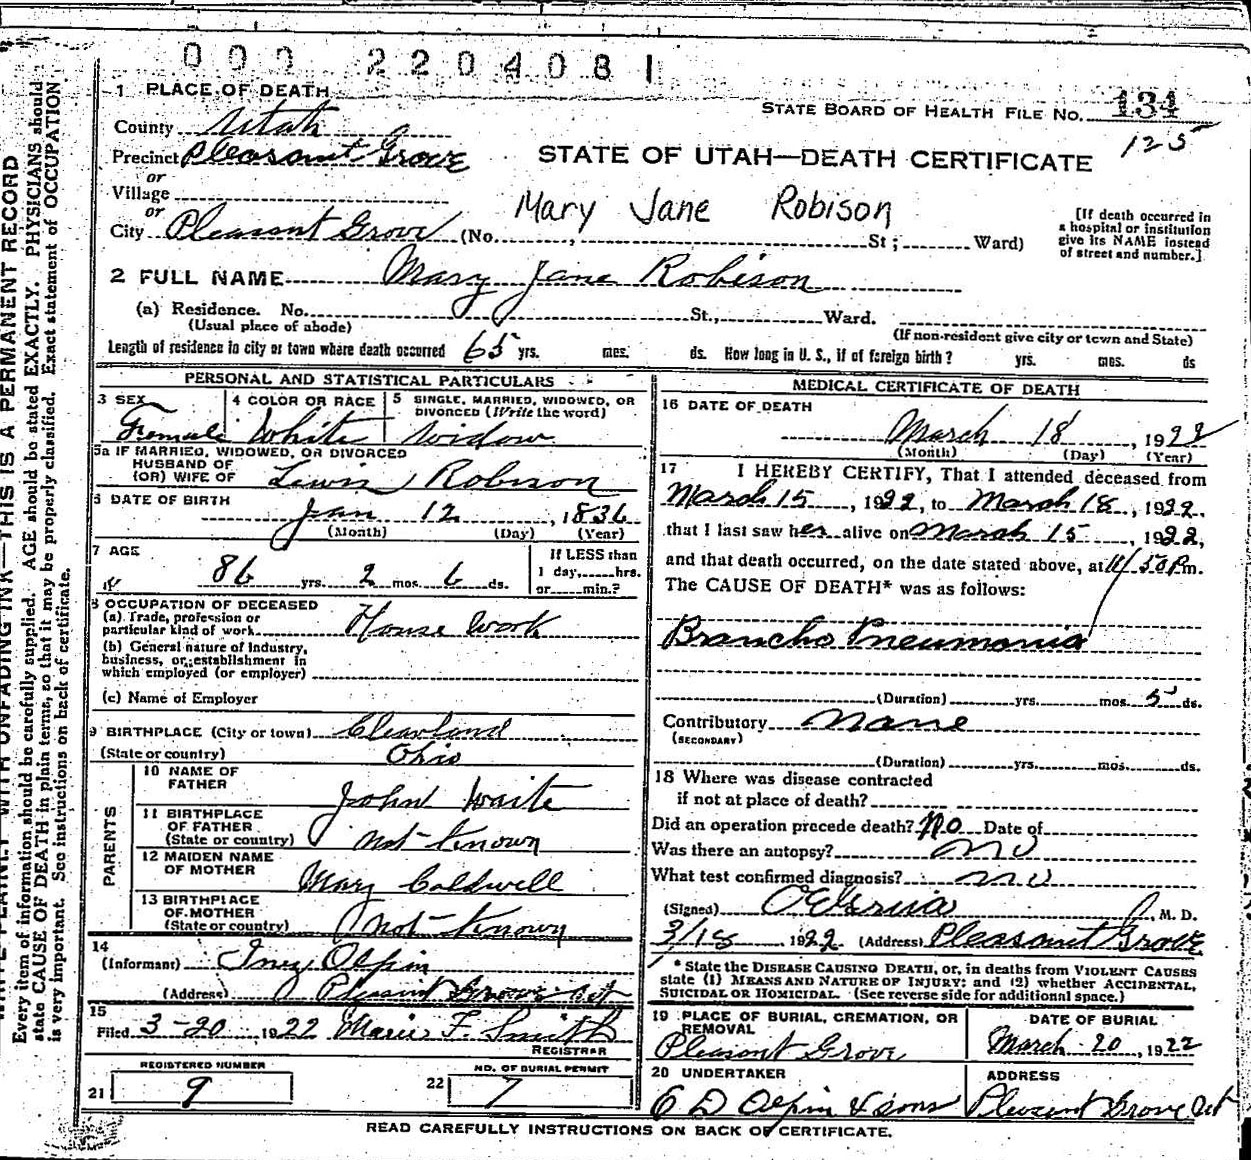 000 2204081
1 PLACE OF DEATH
STATE BOARD OF HEALTH FILE NO. 134
125
County Utah
Precinct Pleasant Grove
or
Village
or
City Pleasant Grove (No. , St ; Ward)
STATE OF UTAH—DEATH CERTIFICATE
Mary Jane Robison
[If death occurred in
a hospital or institution
give its NAME instead
of street and number.]
2 FULL NAME Mary Jane Robison
(a) Residence. No. St., Ward.
(Usual place of abode)
(If non-resident give city or town and State)
Length of residence in city or town where death occurred 65 yrs. mos. ds. How long in U. S., if of foreign birth? yrs. mos. ds
PERSONAL AND STATISTICAL PARTICULARS
3 SEX
Female
4 COLOR OR RACE
White
5 SINGLE, MARRIED, WIDOWED, OR
DIVORCED (Write the word)
Widow
5a IF MARRIED, WIDOWED, OR DIVORCED
HUSBAND OF
(OR) WIFE OF Lewis Robison
6 DATE OF BIRTH
Jan 12, 1836
(Month) (Day) (Year)
7 AGE
86 yrs. 2 mos. 6 ds.
If LESS than
1 day, hrs.
or min.?
8 OCCUPATION OF DECEASED
(a) Trade, profession or
particular kind of work House Work
(b) General nature of Industry,
business, or establishment in
which employed (or employer)
(c) Name of Employer
9 BIRTHPLACE (City or town) Clevland
(State or country) Ohio
PARENTS
10 NAME OF
FATHER John Waite
11 BIRTHPLACE
OF FATHER
(State or country) not known
12 MAIDEN NAME
OF MOTHER Mary Caldwell
13 BIRTHPLACE
OF MOTHER
(State or country) not known
14
(Informant) Inez Olpin
(Address) Pleasant Grove Ut
15
Filed 3-20 1922 Marie F. Smith
REGISTRAR
REGISTERED NUMBER
21 9
NO. OF BURIAL PERMIT
22 7
MEDICAL CERTIFICATE OF DEATH
16 DATE OF DEATH
March 18, 1922
(Month) (Day) (Year)
17 I HEREBY CERTIFY, That I attended deceased from
March 15, 1922, to March 18, 1922,
that I last saw her alive on March 15, 1922,
and that death occurred, on the date stated above, at 11/50 P.m.
The CAUSE OF DEATH* was as follows:
Broncho Pneumonia
(Duration) yrs. mos. 5 ds.
Contributory None
(SECONDARY)
(Duration) yrs. mos. ds.
18 Where was disease contracted
if not at place of death?
Did an operation precede death? No Date of
Was there an autopsy? no
What test confirmed diagnosis? no
(Signed) , M. D.
3/18 1922 (Address) Pleasant Grove
* State the DISEASE CAUSING DEATH, or, in deaths from VIOLENT CAUSES
state (1) MEANS AND NATURE OF INJURY; and (2) whether ACCIDENTAL,
SUICIDAL OR HOMICIDAL. (See reverse side for additional space.)
19 PLACE OF BURIAL, CREMATION, OR
REMOVAL
Pleasant Grove
DATE OF BURIAL
March 20, 1922
20 UNDERTAKER
E D Olpin & Sons
ADDRESS
Pleasant Grove Ut
READ CAREFULLY INSTRUCTIONS ON BACK OF CERTIFICATE.
WRITE PLAINLY WITH UNFADING INK—THIS IS A PERMANENT RECORD
Every item of information should be carefully supplied. AGE should be stated EXACTLY. PHYSICIANS should
state CAUSE OF DEATH in plain terms, so that it may be properly classified. Exact statement of OCCUPATION
is very important. See instructions on back of certificate.